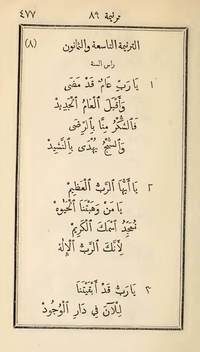 ٤٧٧ ترنيمة ٨٩
الترنيمة التاسعة والثمانون (٨)
راس السنة
١ يَا رَبِّ عَامٌ قَدْ مَضَى
وَأَقْبَلَ ٱلْعَامُ ٱلْجَدِيدْ
فَٱلشُّكْرُ مِنَّا بِٱلرِّضَى
وَٱلسُّبْحُ يُهْدَى بِٱلنَّشِيدْ
٢ يَا أَيُّهَا ٱلرَّبُّ ٱلْعَظِيمْ
يَا مَنْ وَهَبْتَنَا ٱلْحَيٰوهْ
نُمَجِّدُ ٱسْمَكَ ٱلْكَرِيمْ
لِأَنَّكَ ٱلرَّبُّ ٱلْإِلٰهْ
٣ يَا رَبُّ قَدْ أَبْقَيْتَنَا
لِلْآنَ فِي دَارِ ٱلْوُجُودْ